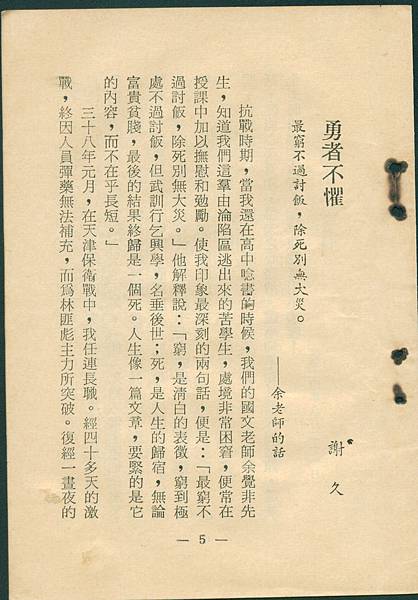 勇者不懼
謝久
最窮不過討飯,除死別無大災。
——余老師的話
抗戰時期,當我還在高中唸書的時候,我們的國文老師余覺非先
生,知道我們這羣由淪陷區逃出來的苦學生,處境非常困窘,便常在
授課中加以撫慰和勉勵。使我印象最深刻的兩句話,便是:「最窮不
過討飯,除死別無大災。」他解釋說:「窮,是淸白的表徵,窮到極
處不過討飯,但武訓行乞興學,名垂後世;死,是人生的歸宿,無論
富貴貧賤,最後的結果終歸是一個死。人生像一篇文章,要緊的是它
的內容,而不在乎長短。」
三十八年元月,在天津保衛戰中,我任連長職。經四十多天的激
戰,終因人員彈藥無法補充,而爲林匪彪主力所突破。復經一晝夜的
— 5 —